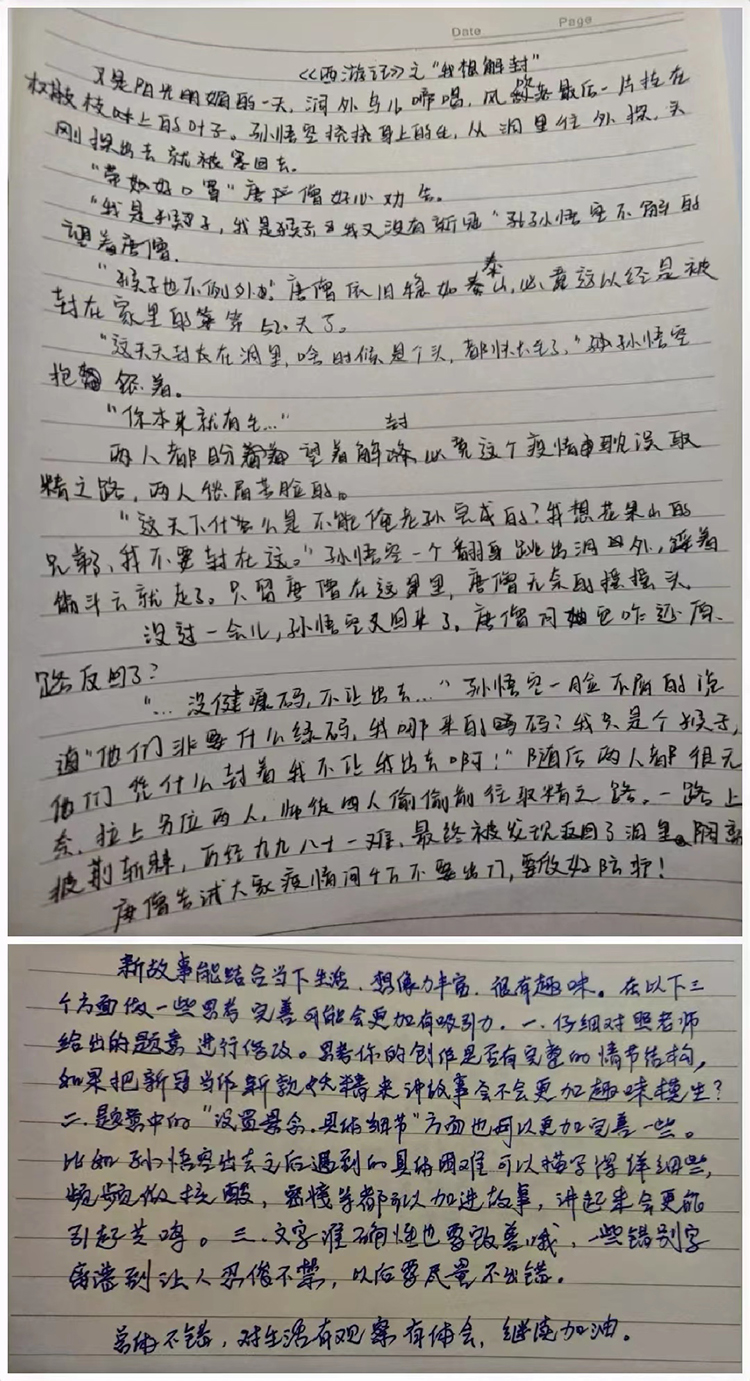 Date
Page
《西游记》之"我想解封"
又是阳光明媚的一天,洞外鸟儿啼唱,风 最后一片挂在
枝叶上的叶子。孙悟空挠挠身上的毛,从洞里往外探,头
刚探出去就被塞回去。
"带好口罩"唐僧好心劝告。
"我是猴子,我是猴子我又没有新冠"孙悟空不解的
望着唐僧。
"猴子也不例外。"唐僧依旧稳如泰山,必竟这以经是被
封在家里的第52天了。
"这天天封在洞里,啥时候是个头,都快长毛了,"孙悟空
抱怨着。
"你本来就有毛…"
两人都盼望着解封,必竟这个疫情耽误取
精之路,两人愁眉苦脸的。
"这天下什么是不能俺老孙完成的?我想花果山的
兄弟了,我不要封在这。"孙悟空一个翻身跳出洞外,踩着
筋斗云就走了。只留唐僧在这里,唐僧无奈的摇摇头
没过一会儿,孙悟空又回来了。唐僧问他咋还原
路反回了?
"…没健康码,不让出去…"孙悟空一脸不屑的说
道"他们非要什么绿码,我哪来的码?我只是个猴子,
他们凭什么封着我不让我出去啊!"随后两人都很无
奈,拉上另位两人,师徒四人偷偷前往取精之路。一路上
披荆斩棘,历经九九八十一难,最终被发现返回了洞里。
唐僧告诫大家疫情间千万不要出门,要做好防护!
新故事能结合当下生活,想像力丰富,很有趣味。在以下三
个方面做一些思考完善可能会更加有吸引力。一.仔细对照老师
给出的题意进行修改。思考你的创作是否有完整的情节结构,
如果把新冠当作新款妖精来讲故事会不会更加趣味横生?
二.题意中的"设置悬念.具体细节"方面也可以更加完善一些。
比如孙悟空出去之后遇到的具体困难可以描写得详细些,
频频做核酸,密接等都可以加进故事,讲起来会更能
引起共鸣。三.文字准确性也要改善哦,一些错别字
离谱到让人忍俊不禁,以后要尽量不出错。
总体不错,对生活有观察有体会,继续加油。